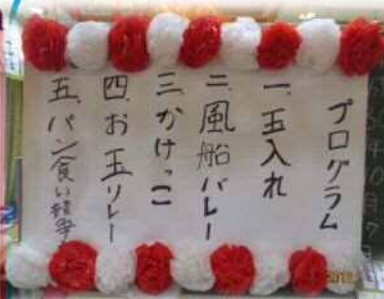 プログラム
一、玉入れ
二、風船バレー
三、かけっこ
四、お玉リレー
五、パン食い競争